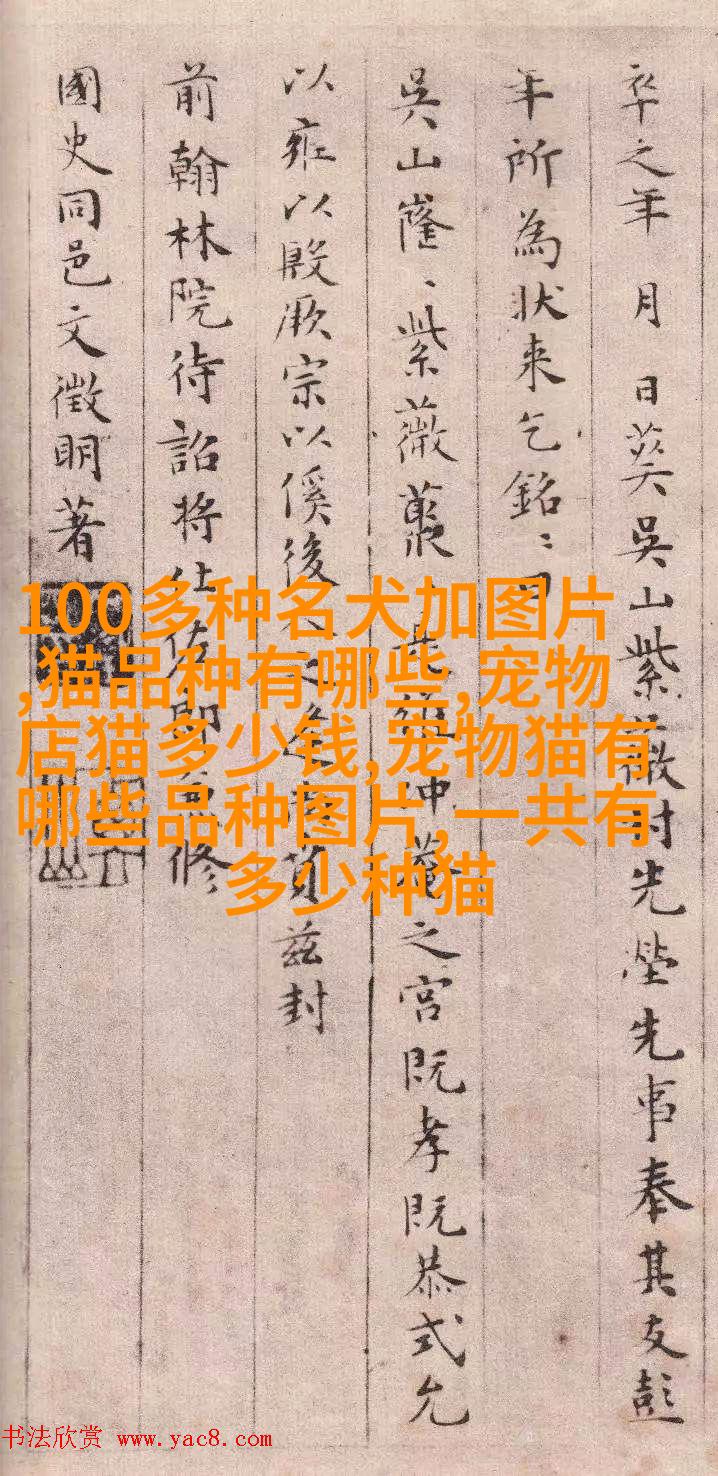 卒之年 月 日葬吳山紫薇村先塋先事奉其友彭
年所為狀来乞銘〻曰
吳山隆〻紫薇叢 是維冲菴之宮既孝既恭式允
以雍以殿厥宗以傒後 兹封
前翰林院待詔將仕佐郎兼修
國史同邑文徵明著
100多种名犬加图片
,猫品种有哪些,宠物
店猫多少钱,宠物猫有
哪些品种图片,一共有
多少种猫
书法欣赏 www.yac8.com